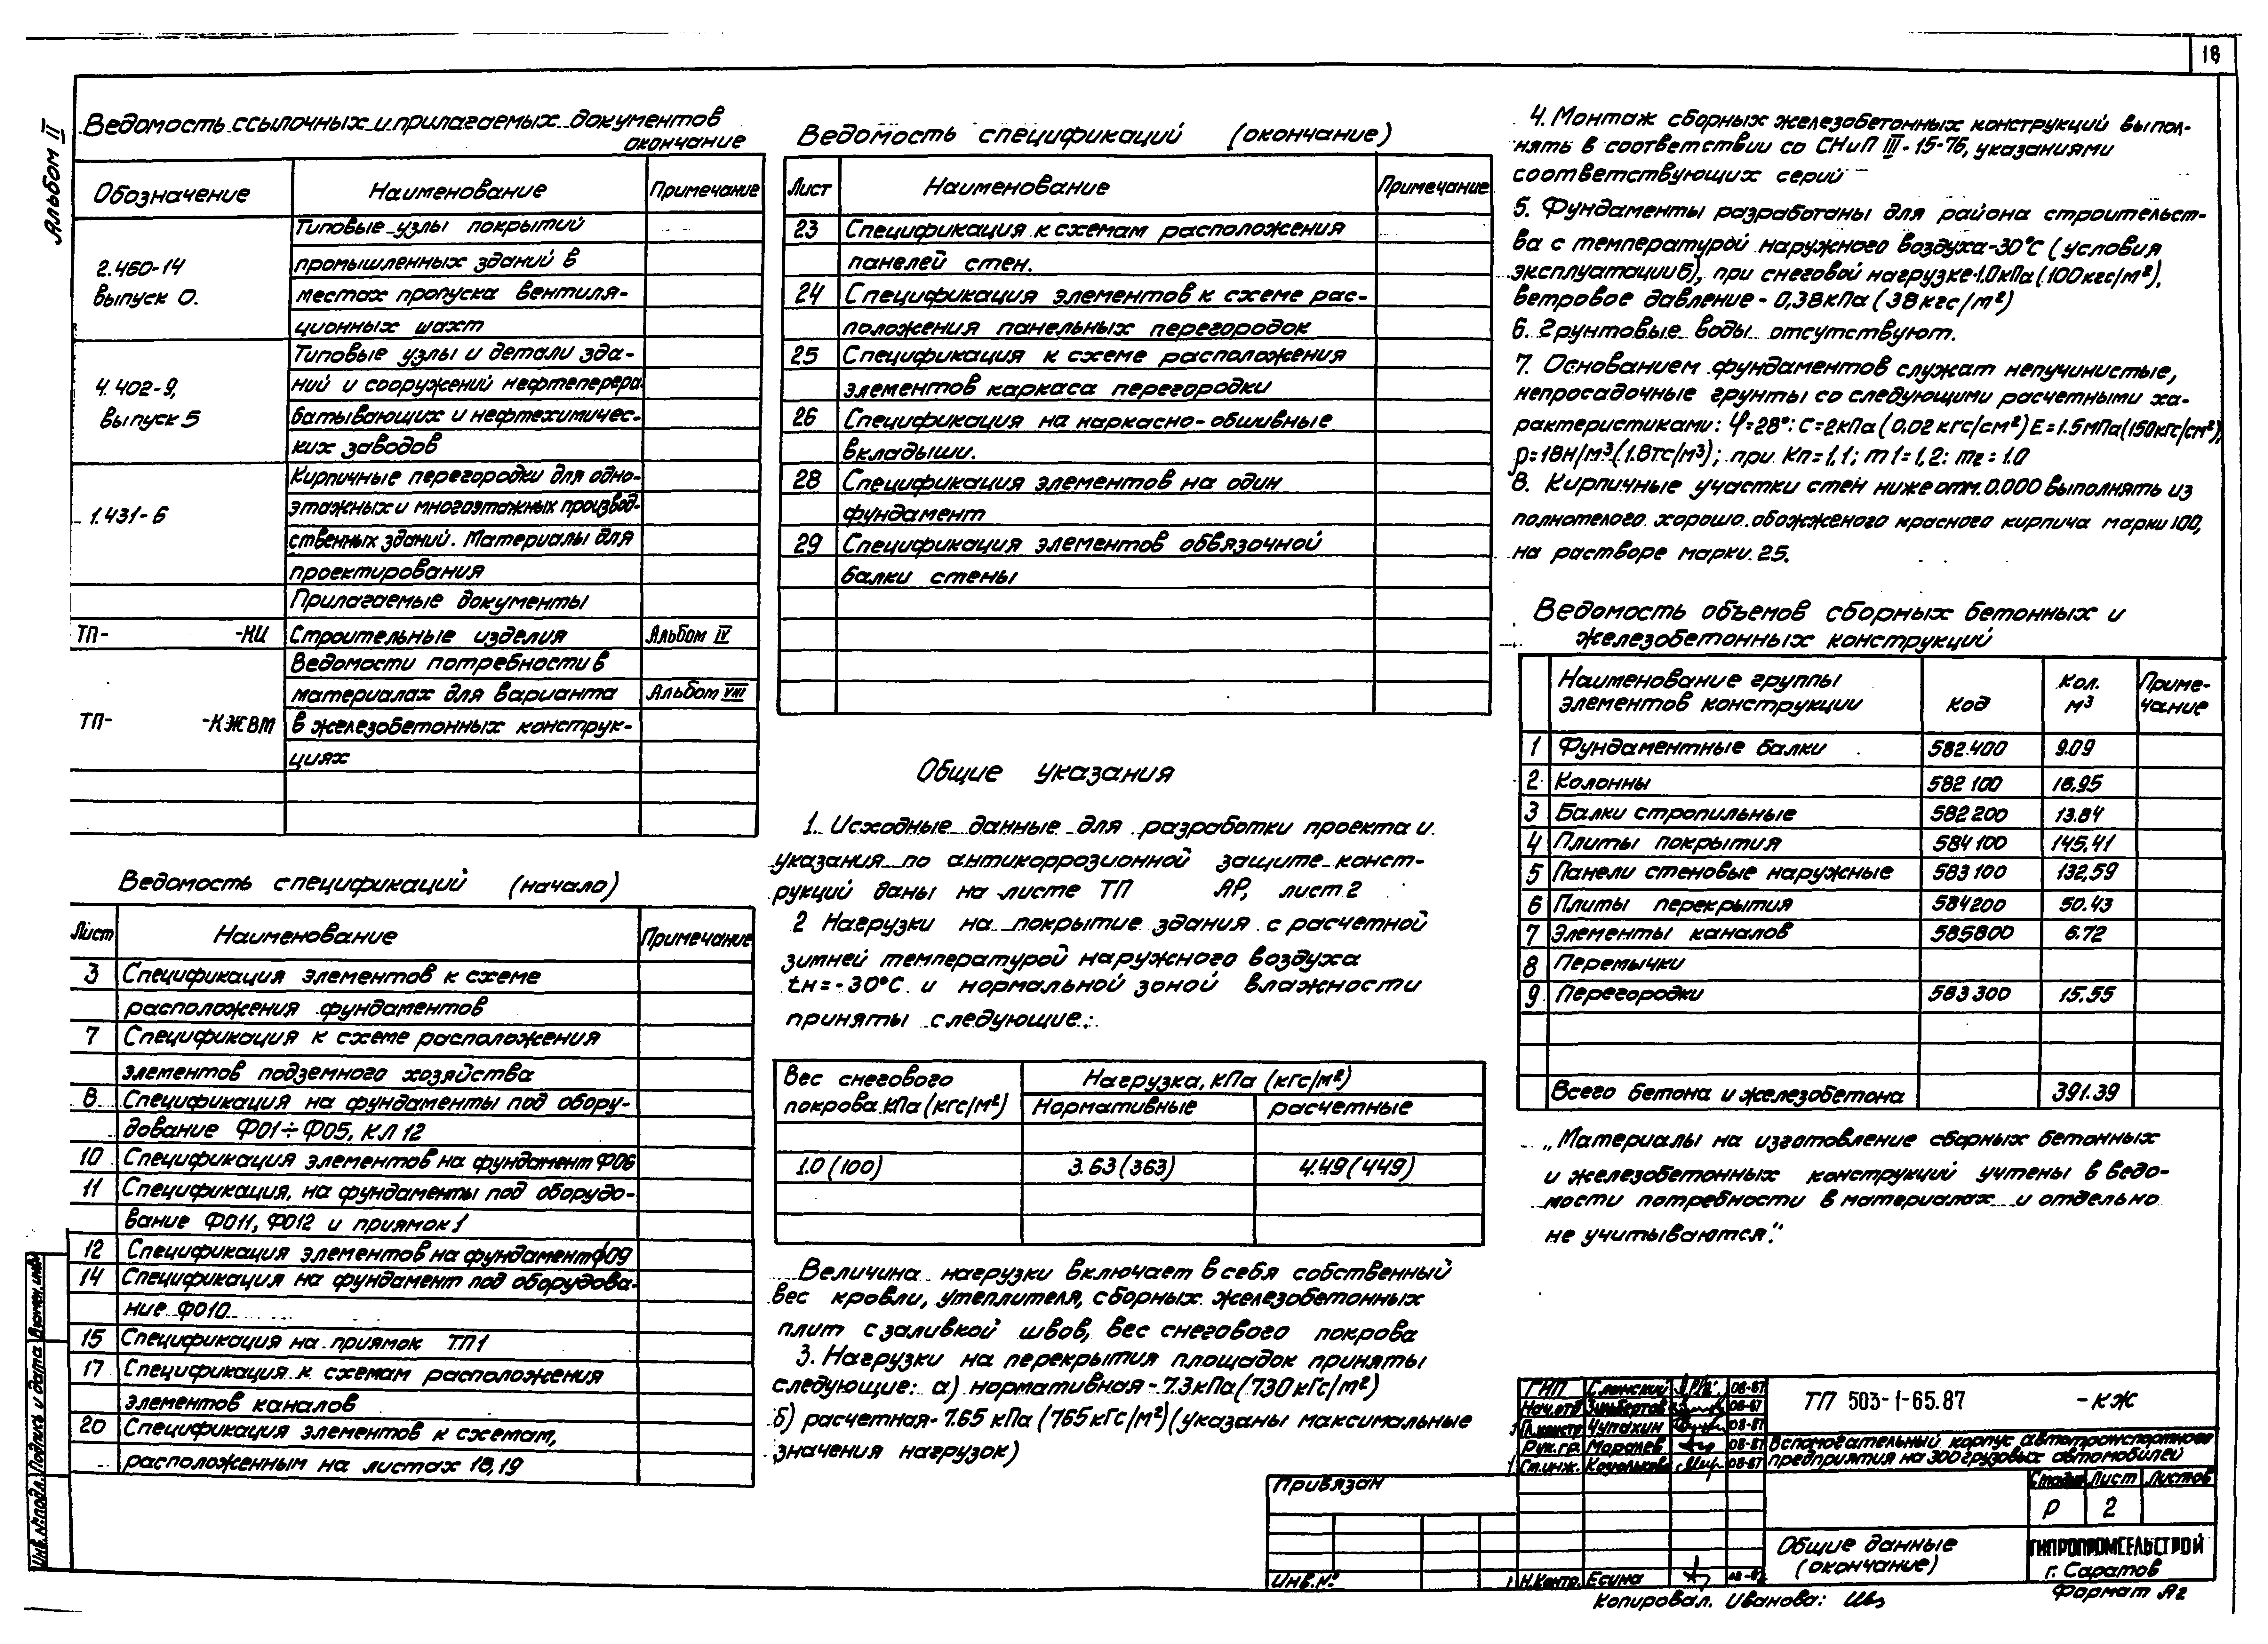 18
Альбом II
Ведомость ссылочных и прилагаемых документов
окончание
Обозначение Наименование Примечание
2.460-14 выпуск 0.
Типовые узлы покрытий
промышленных зданий в
местах пропуска вентиля-
ционных шахт
4.402-9, выпуск 5
Типовые узлы и детали зда-
ний и сооружений нефтеперера
батывающих и нефтехимичес-
ких заводов
1.431-6
Кирпичные перегородки для одно-
этажных и многоэтажных производ-
ственных зданий. Материалы для
проектирования
Прилагаемые документы
ТП- -КИ Строительные изделия Альбом IV
Ведомости потребности в
материалах для варианта Альбом VIII
ТП- -КЖВМ в железобетонных конструк-
циях
Ведомость спецификаций (начало)
Лист Наименование Примечание
3 Спецификация элементов к схеме
расположения фундаментов
7 Спецификация к схеме расположения
элементов подземного хозяйства
8 Спецификация на фундаменты под обору-
дование Ф01÷Ф05, КЛ 12
10 Спецификация элементов на фундамент Ф06
11 Спецификация на фундаменты под оборудо-
вание Ф011, Ф012 и приямок 1
12 Спецификация элементов на фундамент Ф09
14 Спецификация на фундамент под оборудова-
ние Ф010
15 Спецификация на приямок ТП1
17 Спецификация к схемам расположения
элементов каналов
20 Спецификация элементов к схемам,
расположенным на листах 18,19
Ведомость спецификаций (окончание)
Лист Наименование Примечание
23 Спецификация к схемам расположения
панелей стен.
24 Спецификация элементов к схеме рас-
положения панельных перегородок
25 Спецификация к схеме расположения
элементов каркаса перегородки
26 Спецификация на каркасно-обшивные
вкладыши.
28 Спецификация элементов на один
фундамент
29 Спецификация элементов обвязочной
балки стены
Общие указания
1. Исходные данные для разработки проекта и
указания по антикоррозионной защите конст-
рукций даны на листе ТП АР, лист 2
2 Нагрузки на покрытие здания с расчетной
зимней температурой наружного воздуха
tн=-30°С и нормальной зоной влажности
приняты следующие:
Вес снегового Нагрузка, кПа (кгс/м²)
покрова кПа (кгс/м²) Нормативные расчетные
1.0 (100) 3.63 (363) 4.49 (449)
Величина нагрузки включает в себя собственный
вес кровли, утеплителя, сборных железобетонных
плит с заливкой швов, вес снегового покрова
3. Нагрузки на перекрытия площадок приняты
следующие: а) нормативная - 7.3 кПа (730 кГс/м²)
б) расчетная - 7.65 кПа (765 кГс/м²) (указаны максимальные
значения нагрузок)
4. Монтаж сборных железобетонных конструкций выпол-
нять в соответствии со СНиП III-15-76, указаниями
соответствующих серий
5. Фундаменты разработаны для района строительст-
ва с температурой наружного воздуха-30°С (условия
эксплуатации Б), при снеговой нагрузке-1.0кПа (100 кгс/м²),
ветровое давление - 0,38 кПа (38 кгс/м²)
6. Грунтовые воды отсутствуют.
7. Основанием фундаментов служат непучинистые,
непросадочные грунты со следующими расчетными ха-
рактеристиками: φ=28°: С=2кПа (0.02 кгс/см²) Е=1.5МПа (150кгс/см²),
ρ=18Н/м³ (1.8тс/м³); при Кп=1,1; m1=1,2: m2=1.0
8. Кирпичные участки стен ниже отм. 0.000 выполнять из
полнотелого хорошо обожженого красного кирпича марки 100,
на растворе марки 25.
Ведомость объемов сборных бетонных и
железобетонных конструкций
Наименование группы элементов конструкции Код Кол. м³ Приме- чание
1 Фундаментные балки 582.400 9.09
2 Колонны 582 100 16,95
3 Балки стропильные 582 200 13.84
4 Плиты покрытия 584 100 145,41
5 Панели стеновые наружные 583 100 132,59
6 Плиты перекрытия 584200 50.43
7 Элементы каналов 585800 6.72
8 Перемычки
9 Перегородки 583 300 15.55
Всего бетона и железобетона 391.39
„Материалы на изготовление сборных бетонных
и железобетонных конструкций учтены в ведо-
мости потребности в материалах и отдельно
не учитываются."
ГИП Слонский 08-87
Нач.отд 08-87
Гл.констр Чупахин 08-87
Рук.гр. 08-87
Ст.инж. 08-87
Н.Контр. Есина
ТП 503-1-65.87 -КЖ
Вспомогательный корпус автотранспортного
предприятия на 300 грузовых автомобилей
Стадия Лист Листов
Р 2
Общие данные
(окончание)
ГИПРОПРОМСЕЛЬСТРОЙ
г. Саратов
Привязан
Инв.№
Копировал. Иванова:
Формат А2
Инв.№подл. Подпись и дата Взамен.инв№